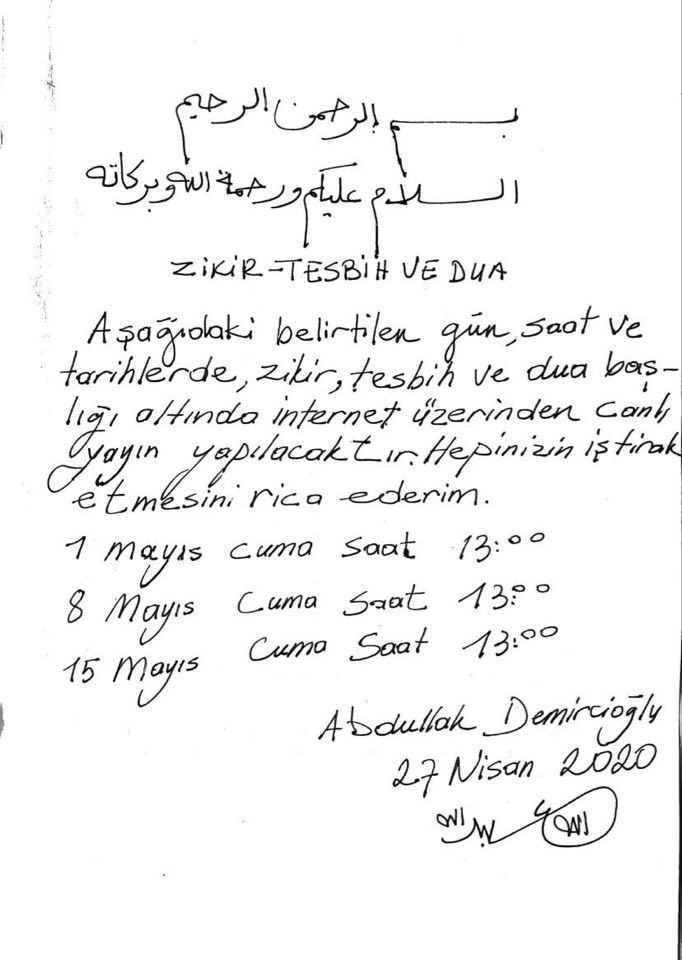 بسم الرحمن الرحيم
السلام عليكم ورحمة الله وبركاته
ZİKİR-TESBİH VE DUA
Aşağıdaki belirtilen gün, saat ve
tarihlerde, zikir, tesbih ve dua baş-
lığı altında internet üzerinden canlı
yayın yapılacaktır. Hepinizin iştirak
etmesini rica ederim.
1 Mayıs Cuma Saat 13:00
8 Mayıs Cuma Saat 13:00
15 Mayıs Cuma Saat 13:00
Abdullah Demircioğlu
27 Nisan 2020